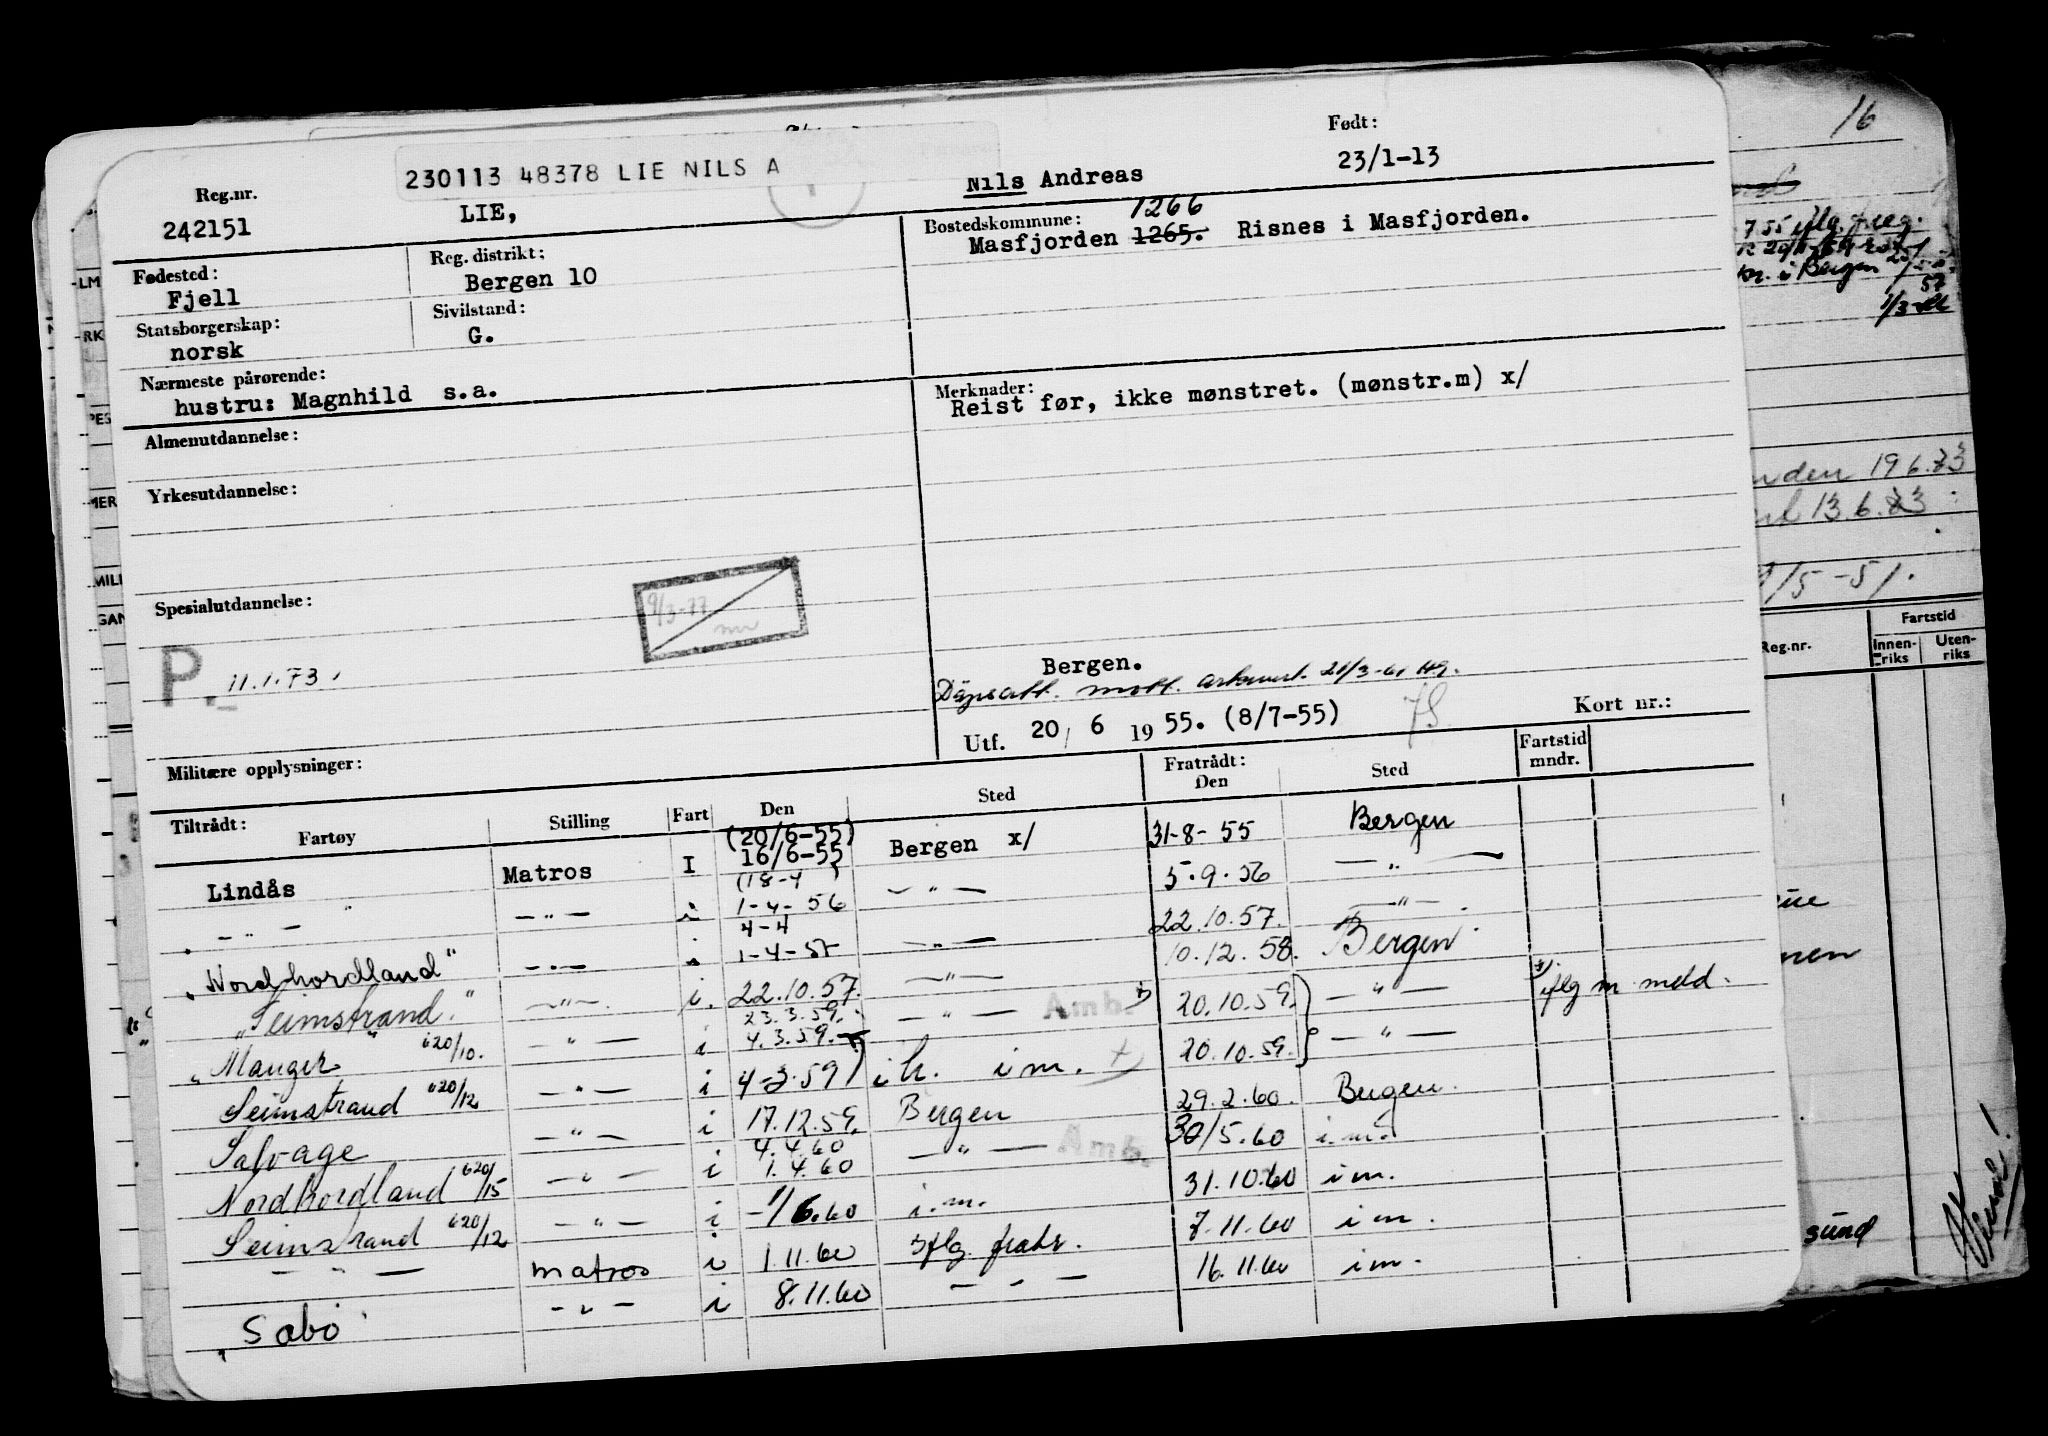 230113 48378 LIE NILS A
Reg.nr. 242151
LIE,
Nils Andreas
Født: 23/1-13
Fødested: Fjell
Reg. distrikt: Bergen 10
Bostedskommune: 1266
Masfjorden 1265. Risnes i Masfjorden.
Statsborgerskap: norsk
Sivilstand: G.
Nærmeste pårørende:
hustru: Magnhild s.a.
Merknader:
Reist før, ikke mønstret. (mønstr.m) x/
Almenutdannelse:
Yrkesutdannelse:
Spesialutdannelse:
9/3-77
P. 11.1.73.
Bergen.
21/3-61
Utf. 20/ 6 1955. (8/7-55)
Kort nr.:
Militære opplysninger:
Tiltrådt: Fartøy Stilling Fart Den Sted Fratrådt: Den Sted Fartstid mndr.
(20/6-55)
Lindås Matros I 16/6-55 Bergen x/ 31-8-55 Bergen
(18-4)
— " — — " — i 1-4-56 — " — 5.9.56 — " —
4-4
"Nordhordland" — " — i 1-4-57 — " — 22.10.57. — " —
"Seimstrand." — " — i. 22.10.57. — " — 10.12.58. Bergen
23.3.59.
"Manger" 620/10. — " — i 4.3.59. — " — Amb. 20.10.59. — " — iflg m meld.
Seimstrand 620/12 — " — i 4-3-59 i h. i m. 20.10.59. — " —
Salvage — " — i 17.12.59. Bergen 29.2.60. Bergen.
4.4.60
Nordhordland 620/15 — " — i 1.4.60 — " — Amb. 30/5.60 i.m.
Seimstrand 620/12 — " — i 1/6.60 i.m. 31.10.60 i m.
— " — matros i 1.11.60 iflg. fratr. 7.11.60 i m.
"Sabo" — " — i 8.11.60 — " — 16.11.60 i m.
16
i Bergen
19.6.
13.6.
/5-51.
Reg.nr.
Fartstid
Innen-riks Uten-riks
sund